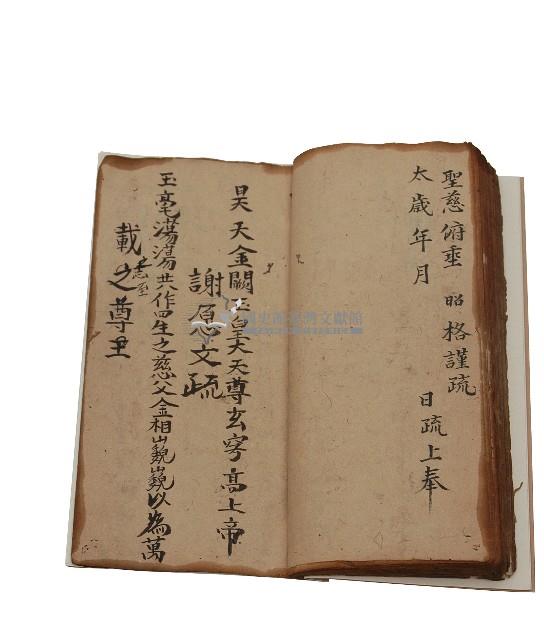 聖慈俯垂 昭格謹疏
太歲年月 日疏上奉
昊天金闕玉皇大天尊玄穹高上帝
謝愿文疏
玉毫蕩蕩共作四生之慈父金相巍巍以為萬
載之尊
國史館臺灣文獻館